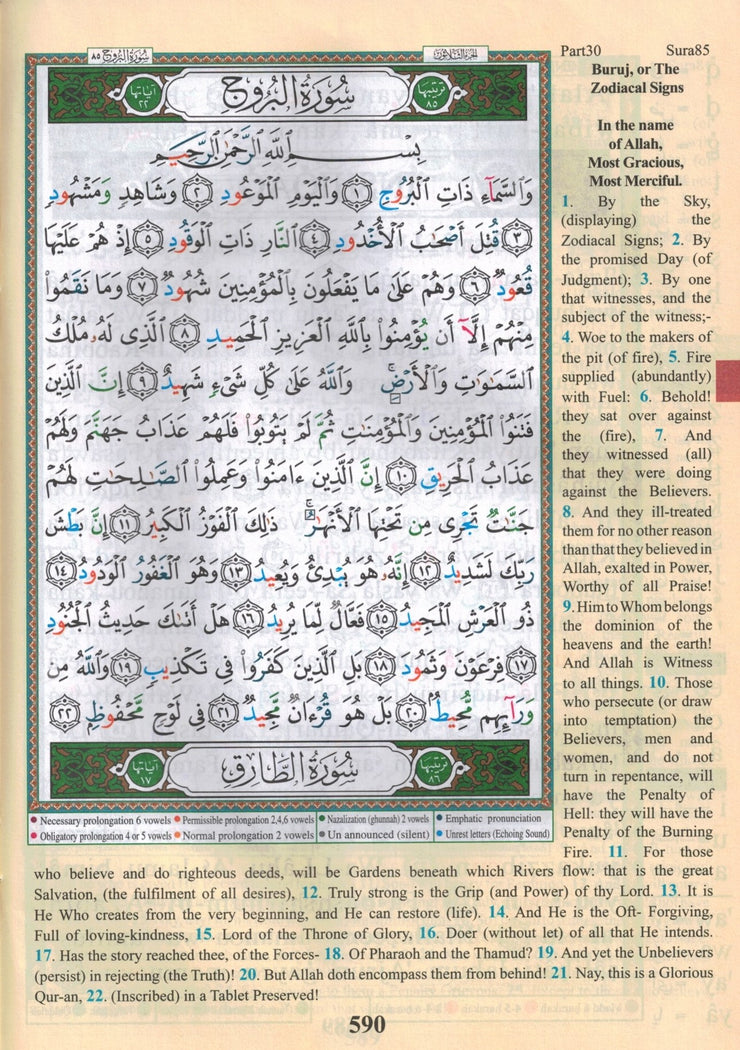 سُورَةُ البُرُوجِ ٨٥
الجزء الثلاثون
Part30 Sura85
آياتها ٢٢
سُورَةُ البُرُوجِ
ترتيبها ٨٥
بِسْمِ ٱللَّهِ ٱلرَّحْمَٰنِ ٱلرَّحِيمِ
وَٱلسَّمَآءِ ذَاتِ ٱلْبُرُوجِ ١ وَٱلْيَوْمِ ٱلْمَوْعُودِ ٢ وَشَاهِدٍ وَمَشْهُودٍ
٣ قُتِلَ أَصْحَٰبُ ٱلْأُخْدُودِ ٤ ٱلنَّارِ ذَاتِ ٱلْوَقُودِ ٥ إِذْ هُمْ عَلَيْهَا
قُعُودٌ ٦ وَهُمْ عَلَىٰ مَا يَفْعَلُونَ بِٱلْمُؤْمِنِينَ شُهُودٌ ٧ وَمَا نَقَمُوا۟
مِنْهُمْ إِلَّآ أَن يُؤْمِنُوا۟ بِٱللَّهِ ٱلْعَزِيزِ ٱلْحَمِيدِ ٨ ٱلَّذِى لَهُۥ مُلْكُ
ٱلسَّمَٰوَٰتِ وَٱلْأَرْضِ ۚ وَٱللَّهُ عَلَىٰ كُلِّ شَىْءٍ شَهِيدٌ ٩ إِنَّ ٱلَّذِينَ
فَتَنُوا۟ ٱلْمُؤْمِنِينَ وَٱلْمُؤْمِنَٰتِ ثُمَّ لَمْ يَتُوبُوا۟ فَلَهُمْ عَذَابُ جَهَنَّمَ وَلَهُمْ
عَذَابُ ٱلْحَرِيقِ ١٠ إِنَّ ٱلَّذِينَ ءَامَنُوا۟ وَعَمِلُوا۟ ٱلصَّٰلِحَٰتِ لَهُمْ
جَنَّٰتٌ تَجْرِى مِن تَحْتِهَا ٱلْأَنْهَٰرُ ۚ ذَٰلِكَ ٱلْفَوْزُ ٱلْكَبِيرُ ١١ إِنَّ بَطْشَ
رَبِّكَ لَشَدِيدٌ ١٢ إِنَّهُۥ هُوَ يُبْدِئُ وَيُعِيدُ ١٣ وَهُوَ ٱلْغَفُورُ ٱلْوَدُودُ ١٤
ذُو ٱلْعَرْشِ ٱلْمَجِيدُ ١٥ فَعَّالٌ لِّمَا يُرِيدُ ١٦ هَلْ أَتَىٰكَ حَدِيثُ ٱلْجُنُودِ
١٧ فِرْعَوْنَ وَثَمُودَ ١٨ بَلِ ٱلَّذِينَ كَفَرُوا۟ فِى تَكْذِيبٍ ١٩ وَٱللَّهُ مِن
وَرَآئِهِم مُّحِيطٌ ٢٠ بَلْ هُوَ قُرْءَانٌ مَّجِيدٌ ٢١ فِى لَوْحٍ مَّحْفُوظٍ ٢٢
آياتها ١٧
سُورَةُ الطَّارِقِ
ترتيبها ٨٦
Necessary prolongation 6 vowels Permissible prolongation 2,4,6 vowels Nazalization (ghunnah) 2 vowels Emphatic pronunciation
Obligatory prolongation 4 or 5 vowels Normal prolongation 2 vowels Un announced (silent) Unrest letters (Echoing Sound)
Buruj, or The
Zodiacal Signs
In the name
of Allah,
Most Gracious,
Most Merciful.
1. By the Sky,
(displaying) the
Zodiacal Signs; 2. By
the promised Day (of
Judgment); 3. By one
that witnesses, and the
subject of the witness;-
4. Woe to the makers of
the pit (of fire), 5. Fire
supplied (abundantly)
with Fuel: 6. Behold!
they sat over against
the (fire), 7. And
they witnessed (all)
that they were doing
against the Believers.
8. And they ill-treated
them for no other reason
than that they believed in
Allah, exalted in Power,
Worthy of all Praise!
9. Him to Whom belongs
the dominion of the
heavens and the earth!
And Allah is Witness
to all things. 10. Those
who persecute (or draw
into temptation) the
Believers, men and
women, and do not
turn in repentance, will
have the Penalty of
Hell: they will have the
Penalty of the Burning
Fire. 11. For those
who believe and do righteous deeds, will be Gardens beneath which Rivers flow: that is the great
Salvation, (the fulfilment of all desires), 12. Truly strong is the Grip (and Power) of thy Lord. 13. It is
He Who creates from the very beginning, and He can restore (life). 14. And He is the Oft- Forgiving,
Full of loving-kindness, 15. Lord of the Throne of Glory, 16. Doer (without let) of all that He intends.
17. Has the story reached thee, of the Forces- 18. Of Pharaoh and the Thamud? 19. And yet the Unbelievers
(persist) in rejecting (the Truth)! 20. But Allah doth encompass them from behind! 21. Nay, this is a Glorious
Qur-an, 22. (Inscribed) in a Tablet Preserved!
590